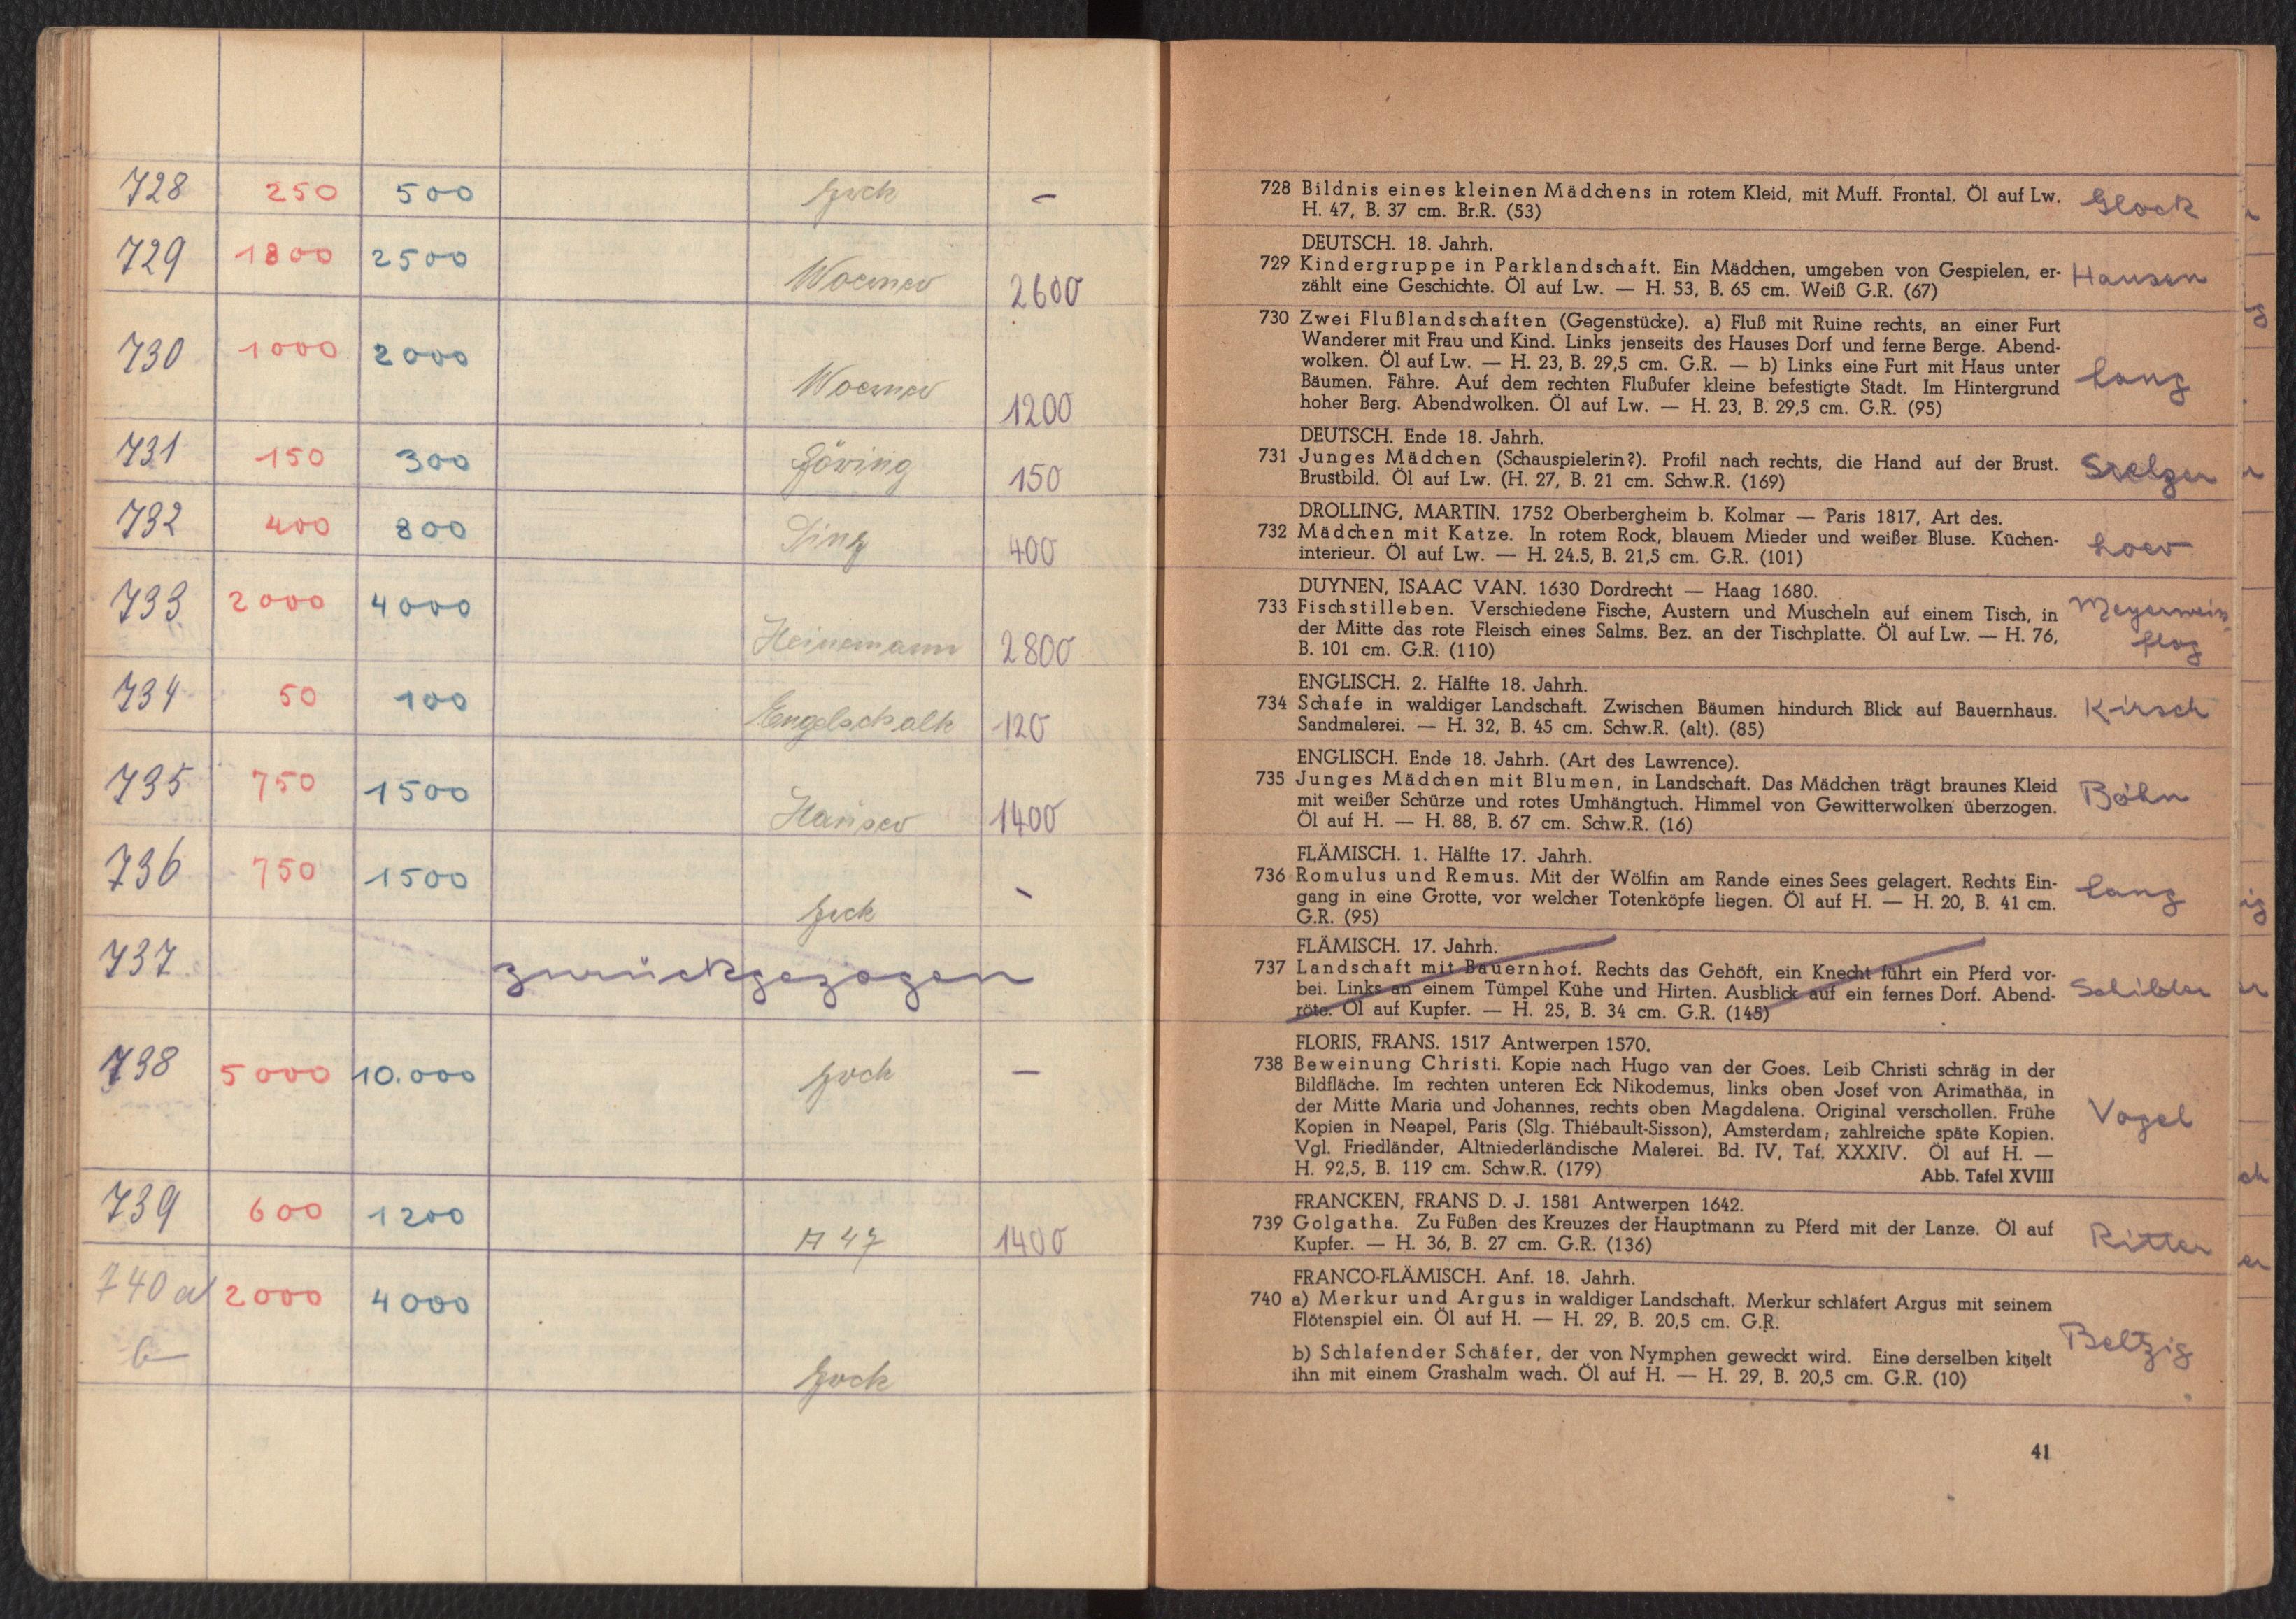 728 250 500 –
729 1800 2500 Woerner 2600
730 1000 2000 Woerner 1200
731 150 300 150
732 400 800 400
733 2000 4000 Heinemann 2800
734 50 100 Engelschalk 120
735 750 1500 Hauser 1400
736 750 1500 –
737 zurückgezogen
738 5000 10.000 –
739 600 1200 1400
740 a/ 2000 4000
b
728 Bildnis eines kleinen Mädchens in rotem Kleid, mit Muff. Frontal. Öl auf Lw. Glock
H. 47, B. 37 cm. Br.R. (53)
DEUTSCH. 18. Jahrh.
729 Kindergruppe in Parklandschaft. Ein Mädchen, umgeben von Gespielen, er- Hausen
zählt eine Geschichte. Öl auf Lw. — H. 53, B. 65 cm. Weiß G.R. (67)
730 Zwei Flußlandschaften (Gegenstücke). a) Fluß mit Ruine rechts, an einer Furt
Wanderer mit Frau und Kind. Links jenseits des Hauses Dorf und ferne Berge. Abend-
wolken. Öl auf Lw. — H. 23, B. 29,5 cm. G.R. — b) Links eine Furt mit Haus unter
Bäumen. Fähre. Auf dem rechten Flußufer kleine befestigte Stadt. Im Hintergrund Lang
hoher Berg. Abendwolken. Öl auf Lw. — H. 23, B. 29,5 cm. G.R. (95)
DEUTSCH. Ende 18. Jahrh.
731 Junges Mädchen (Schauspielerin?). Profil nach rechts, die Hand auf der Brust. Stelzer
Brustbild. Öl auf Lw. (H. 27, B. 21 cm. Schw.R. (169)
DROLLING, MARTIN. 1752 Oberbergheim b. Kolmar — Paris 1817, Art des.
732 Mädchen mit Katze. In rotem Rock, blauem Mieder und weißer Bluse. Küchen-
interieur. Öl auf Lw. — H. 24.5, B. 21,5 cm. G.R. (101)
DUYNEN, ISAAC VAN. 1630 Dordrecht — Haag 1680.
733 Fischstilleben. Verschiedene Fische, Austern und Muscheln auf einem Tisch, in
der Mitte das rote Fleisch eines Salms. Bez. an der Tischplatte. Öl auf Lw. — H. 76,
B. 101 cm. G.R. (110)
ENGLISCH. 2. Hälfte 18. Jahrh.
734 Schafe in waldiger Landschaft. Zwischen Bäumen hindurch Blick auf Bauernhaus. Kirsch
Sandmalerei. — H. 32, B. 45 cm. Schw.R. (alt). (85)
ENGLISCH. Ende 18. Jahrh. (Art des Lawrence).
735 Junges Mädchen mit Blumen, in Landschaft. Das Mädchen trägt braunes Kleid Böhn
mit weißer Schürze und rotes Umhängtuch. Himmel von Gewitterwolken überzogen.
Öl auf H. — H. 88, B. 67 cm. Schw.R. (16)
FLÄMISCH. 1. Hälfte 17. Jahrh.
736 Romulus und Remus. Mit der Wölfin am Rande eines Sees gelagert. Rechts Ein- Lang
gang in eine Grotte, vor welcher Totenköpfe liegen. Öl auf H. — H. 20, B. 41 cm.
G.R. (95)
FLÄMISCH. 17. Jahrh.
737 Landschaft mit Bauernhof. Rechts das Gehöft, ein Knecht führt ein Pferd vor-
bei. Links an einem Tümpel Kühe und Hirten. Ausblick auf ein fernes Dorf. Abend-
röte. Öl auf Kupfer. — H. 25, B. 34 cm. G.R. (145)
FLORIS, FRANS. 1517 Antwerpen 1570.
738 Beweinung Christi. Kopie nach Hugo van der Goes. Leib Christi schräg in der
Bildfläche. Im rechten unteren Eck Nikodemus, links oben Josef von Arimathäa, in
der Mitte Maria und Johannes, rechts oben Magdalena. Original verschollen. Frühe Vogel
Kopien in Neapel, Paris (Slg. Thiébault-Sisson), Amsterdam; zahlreiche späte Kopien.
Vgl. Friedländer, Altniederländische Malerei. Bd. IV, Taf. XXXIV. Öl auf H. —
H. 92,5, B. 119 cm. Schw.R. (179) Abb. Tafel XVIII
FRANCKEN, FRANS D. J. 1581 Antwerpen 1642.
739 Golgatha. Zu Füßen des Kreuzes der Hauptmann zu Pferd mit der Lanze. Öl auf Ritter
Kupfer. — H. 36, B. 27 cm. G.R. (136)
FRANCO-FLÄMISCH. Anf. 18. Jahrh.
740 a) Merkur und Argus in waldiger Landschaft. Merkur schläfert Argus mit seinem
Flötenspiel ein. Öl auf H. — H. 29, B. 20,5 cm. G.R.
b) Schlafender Schäfer, der von Nymphen geweckt wird. Eine derselben kitzelt Beltzig
ihn mit einem Grashalm wach. Öl auf H. — H. 29, B. 20,5 cm. G.R. (10)
41